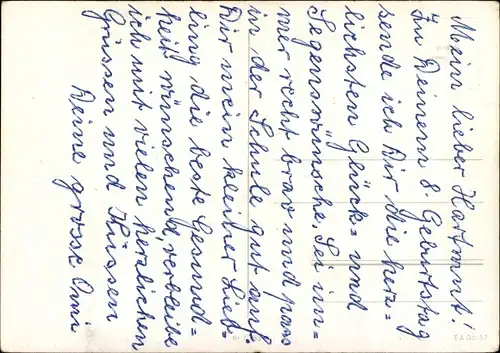 Mein lieber Hartmut!
Zu Deinem 8. Geburtstag
sende ich Dir die herz=
lichsten Glück= und
Segenswünsche. Sei im=
mer recht brav und pass
in der Schule gut auf.
Dir mein kleiner Lieb=
ling die beste Gesund=
heit wünschend, verbleibe
ich mit vielen herzlichen
Grüssen und Küssen
Deine grosse Omi
EA 06-57